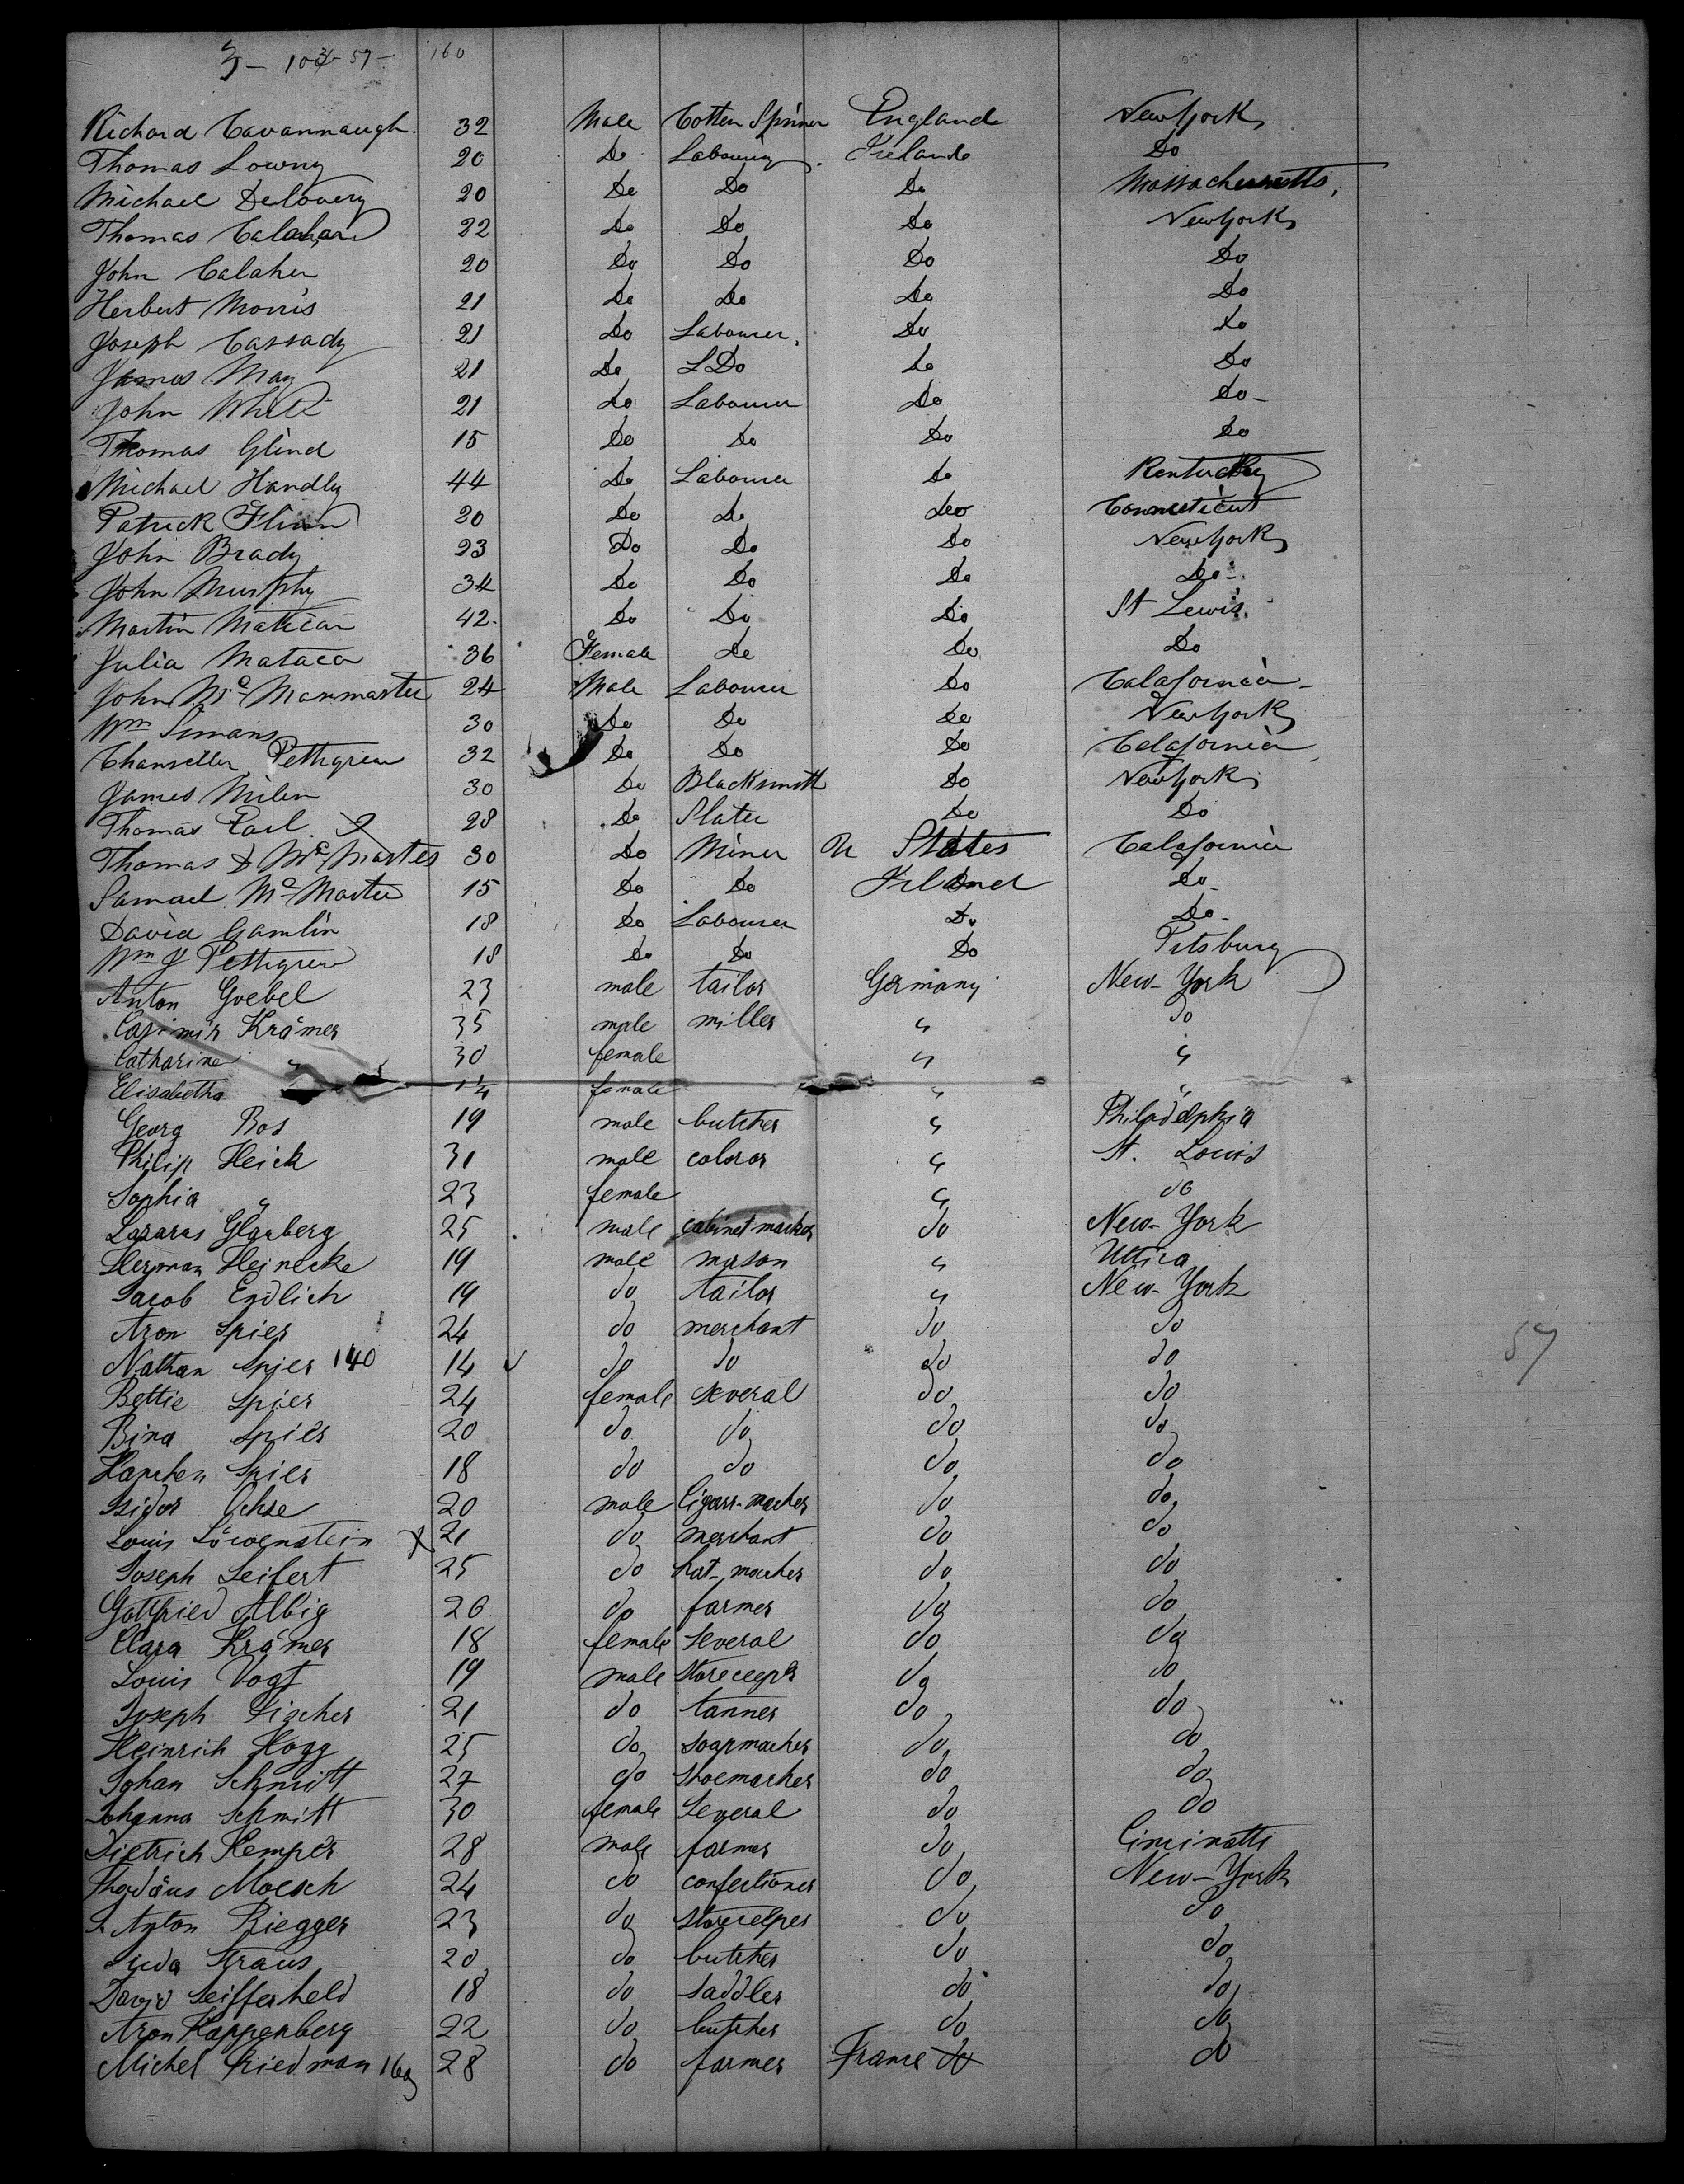 3 - 103 - 57 - 160
Richard Cavannaugh 32 Male Cotten Spinner England New York
Thomas Lowny 20 Do Labouring Irelande Do
Michael Delovery 20 Do Do Do Massachusetts
Thomas Calahan 22 Do Do Do New York
John Calaher 20 Do Do Do Do
Herbert Morris 21 Do Do Do Do
Joseph Cassady 21 Do Labourer Do Do
James May 21 Do L Do Do Do
John White 21 Do Labourer Do Do
Thomas Glind 15 Do Do Do Do
Michael Handly 44 Do Labourer Do Kentucky
Patrick Flinn 20 Do Do Do Connecticut
John Brady 23 Do Do Do New York
John Murphy 34 Do Do Do Do
Martin Matican 42 Do Do Do St Lewis
Julia Mataca 36 Female Do Do Do
John Mc Manmaster 24 Male Labourer Do Calafornia
Wm Simans 30 Do Do Do New York
Chanseller Pettigrew 32 Do Do Do Calafornia
James Milen 30 Do Blacksmith Do New York
Thomas Earl 28 Do Slater Do Do
Thomas D McMartes 30 Do Miner U States Calafornia
Samuel McMaster 15 Do Do Ireland Do
David Gamlin 18 Do Labourer Do Do
Wm J Pettigrew 18 Do Do Do Pitsburg
Anton Goebel 23 male tailor Germany New-York
Casimir Krämer 35 male miller " do
Catharine " 30 female " "
Elisabetha 1¼ female " "
Georg Bos 19 male butcher " Philadelphia
Philip Heick 31 male coloror " St. Louis
Sophia " 23 female " do
Lazarus Glauberg 25 male cabinet macker do New-York
Herman Heinecke 19 male mason " Uttica
Jacob Endlich 19 do tailor " New-York
Aron Spier 24 do merchant do do
Nathan Spier 140 14 do do do do
Bettie Spier 24 female several do do
Bina Spier 20 do do do do
Hanchen Spier 18 do do do do
Isidor Ochse 20 male Cigarr-macher do do
Louis Löwenstein 21 do merchant do do
Joseph Seifert 25 do hat-macher do do
Gottfried Albig 26 do farmer do do
Clara Krämer 18 female several do do
Louis Vogt 19 male storeceeper do do
Joseph Fischer 21 do tanner do do
Heinrich Hogg 25 do soapmacher do do
Johan Schmidt 27 do shoemacher do do
Johanna Schmitt 30 female Several do do
Dietrich Kemper 28 male farmer do Cincinatti
Thadäus Moesch 24 do confectioner do New-York
Anton Riegger 23 do storecelper do do
Juda Straus 20 do butcher do do
David Seifferheld 18 do saddler do do
Aron Kappenberg 22 do butcher do do
Michel Friedman 160 28 do farmer France do do
57